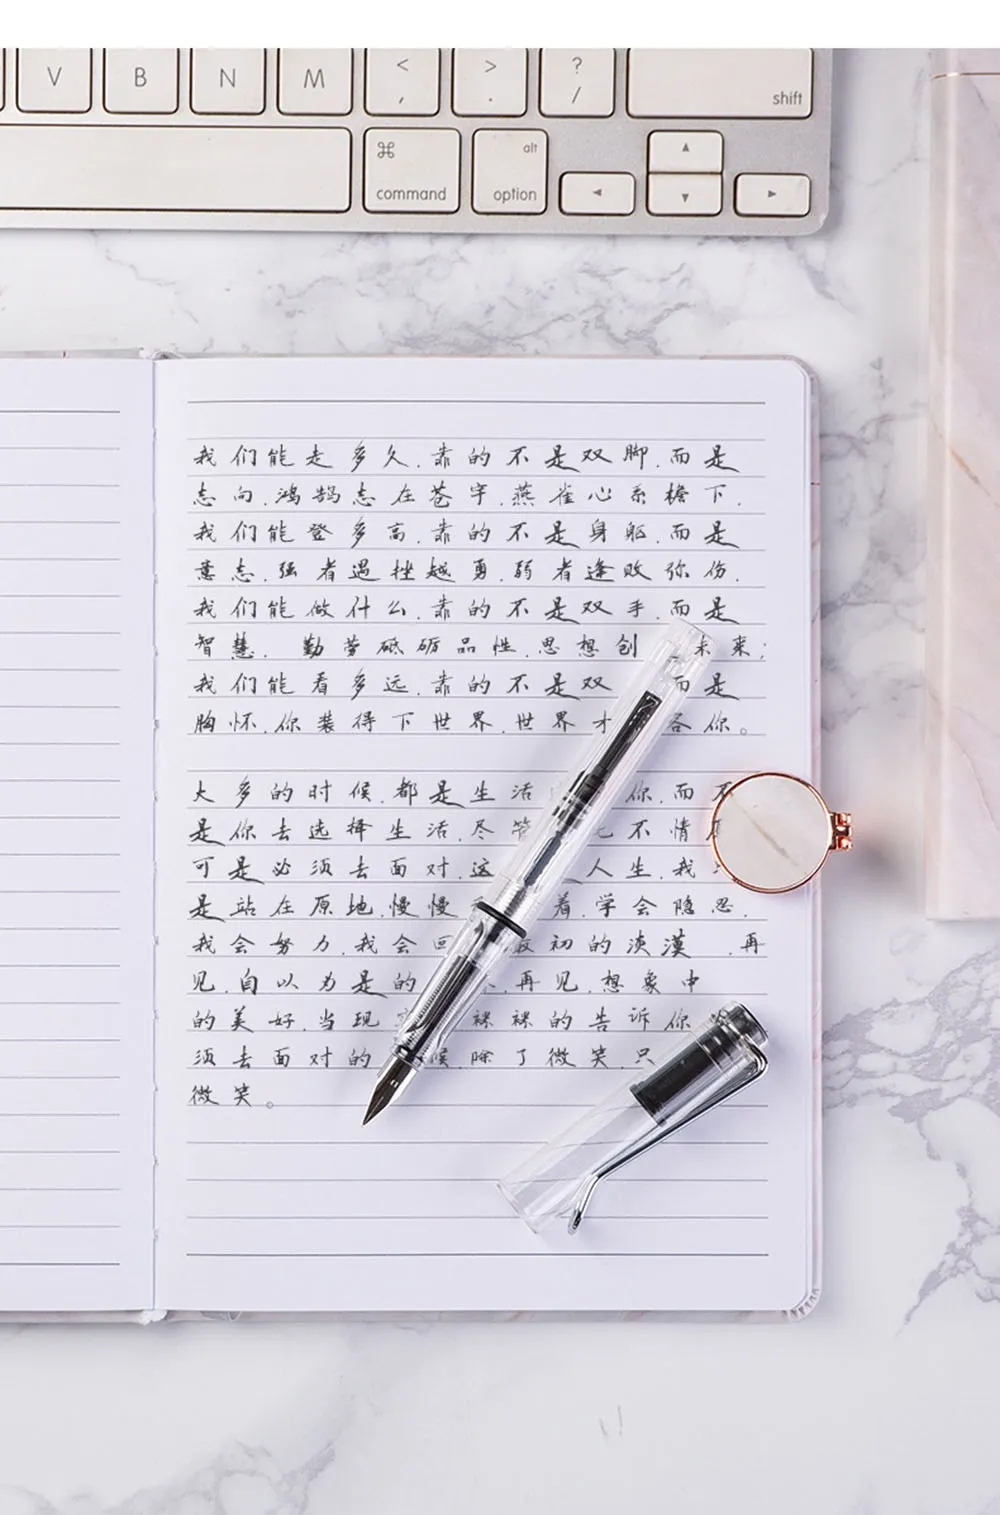 V B N M < , > . ? / shift
⌘ command alt option
我们能走多久.靠的不是双脚.而是
志向.鸿鹄志在苍宇.燕雀心系檐下.
我们能登多高.靠的不是身躯.而是
意志.强者遇挫越勇.弱者逢败你伤.
我们能做什么.靠的不是双手.而是
智慧.勤劳砥砺品性.思想创 未来;
我们能看多远.靠的不是双 而是
胸怀.你装得下世界.世界才 容你。
大多的时候.都是生活 你.而不
是你去选择生活.尽管 不情
可是必须去面对.这 人生.我
是站在原地.慢慢 着.学会隐忍.
我会努力.我会回 最初的淡漠.再
见.自以为是的 .再见.想象中
的美好.当现 裸裸的告诉你
须去面对的 候.除了微笑.只
微笑。